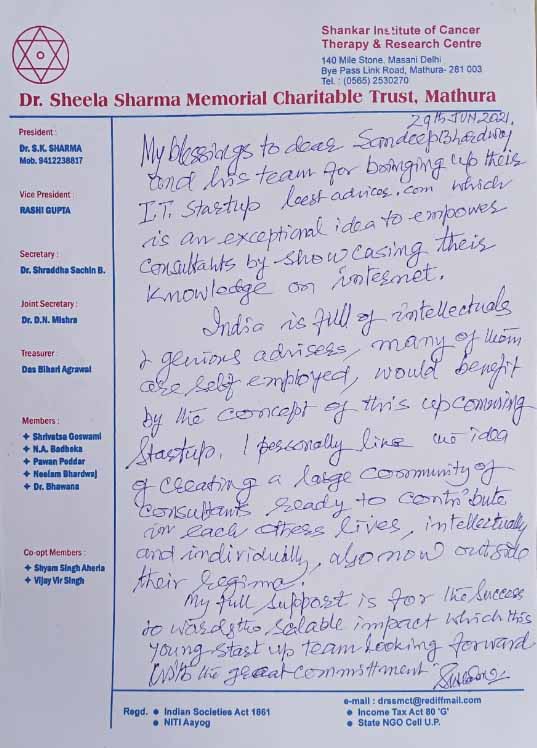 Shankar Institute of Cancer
Therapy & Research Centre
140 Mile Stone, Masani Delhi
Bye Pass Link Road, Mathura- 281 003
Tel. : (0565) 2530270
Dr. Sheela Sharma Memorial Charitable Trust, Mathura
President :
Dr. S.K. SHARMA
Mob. 9412238817
Vice President :
RASHI GUPTA
Secretary :
Dr. Shraddha Sachin B.
Joint Secretary :
Dr. D.N. Mishra
Treasurer
Das Bihari Agrawal
Members :
Shrivatsa Goswami
N.A. Badheka
Pawan Poddar
Neelam Bhardwaj
Dr. Bhawana
Co-opt Members :
Shyam Singh Aheria
Vijay Vir Singh
JUN 2021.
My blessings to dear Sandeep Bhardwaj
and his team for bringing up their
I.T. Startup bestadvices.com which
is an exceptional idea to empower
Consultants by showcasing their
Knowledge on internet.
India is full of intellectuals
& genious advisers, many of them
are self employed, would benefit
by the concept of this upcomming
Startup. I personally like the idea
of creating a large community of
Consultants ready to contribute
in each others lives, intellectually
and individually, also now outside
their regime.
My full support is for the success
towards the scalable impact which this
young start up team looking forward
with the great committment
Regd. Indian Societies Act 1861
NITI Aayog
e-mail : drssmct@rediffmail.com
Income Tax Act 80 'G'
State NGO Cell U.P.